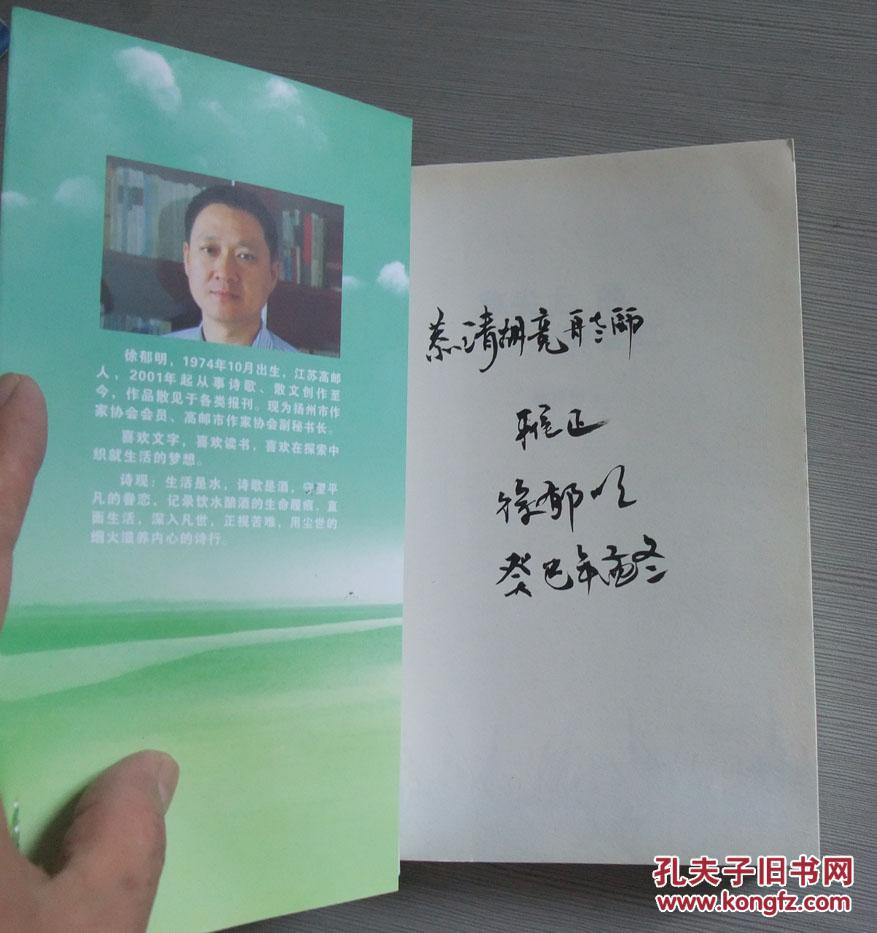 徐郁明，1974年10月出生，江苏高邮
人，2001年起从事诗歌、散文创作至
今，作品散见于各类报刊。现为扬州市作
家协会会员、高邮市作家协会副秘书长。
喜欢文字，喜欢读书，喜欢在探索中
织就生活的梦想。
诗观：生活是水，诗歌是酒，守望平
凡的眷恋，记录饮水酿酒的生命履痕，直
面生活，深入凡世，正视苦难，用尘世的
烟火滋养内心的诗行。
恭请胡竞舟老师
雅正
徐郁明
癸巳年孟冬
孔夫子旧书网
www.kongfz.com